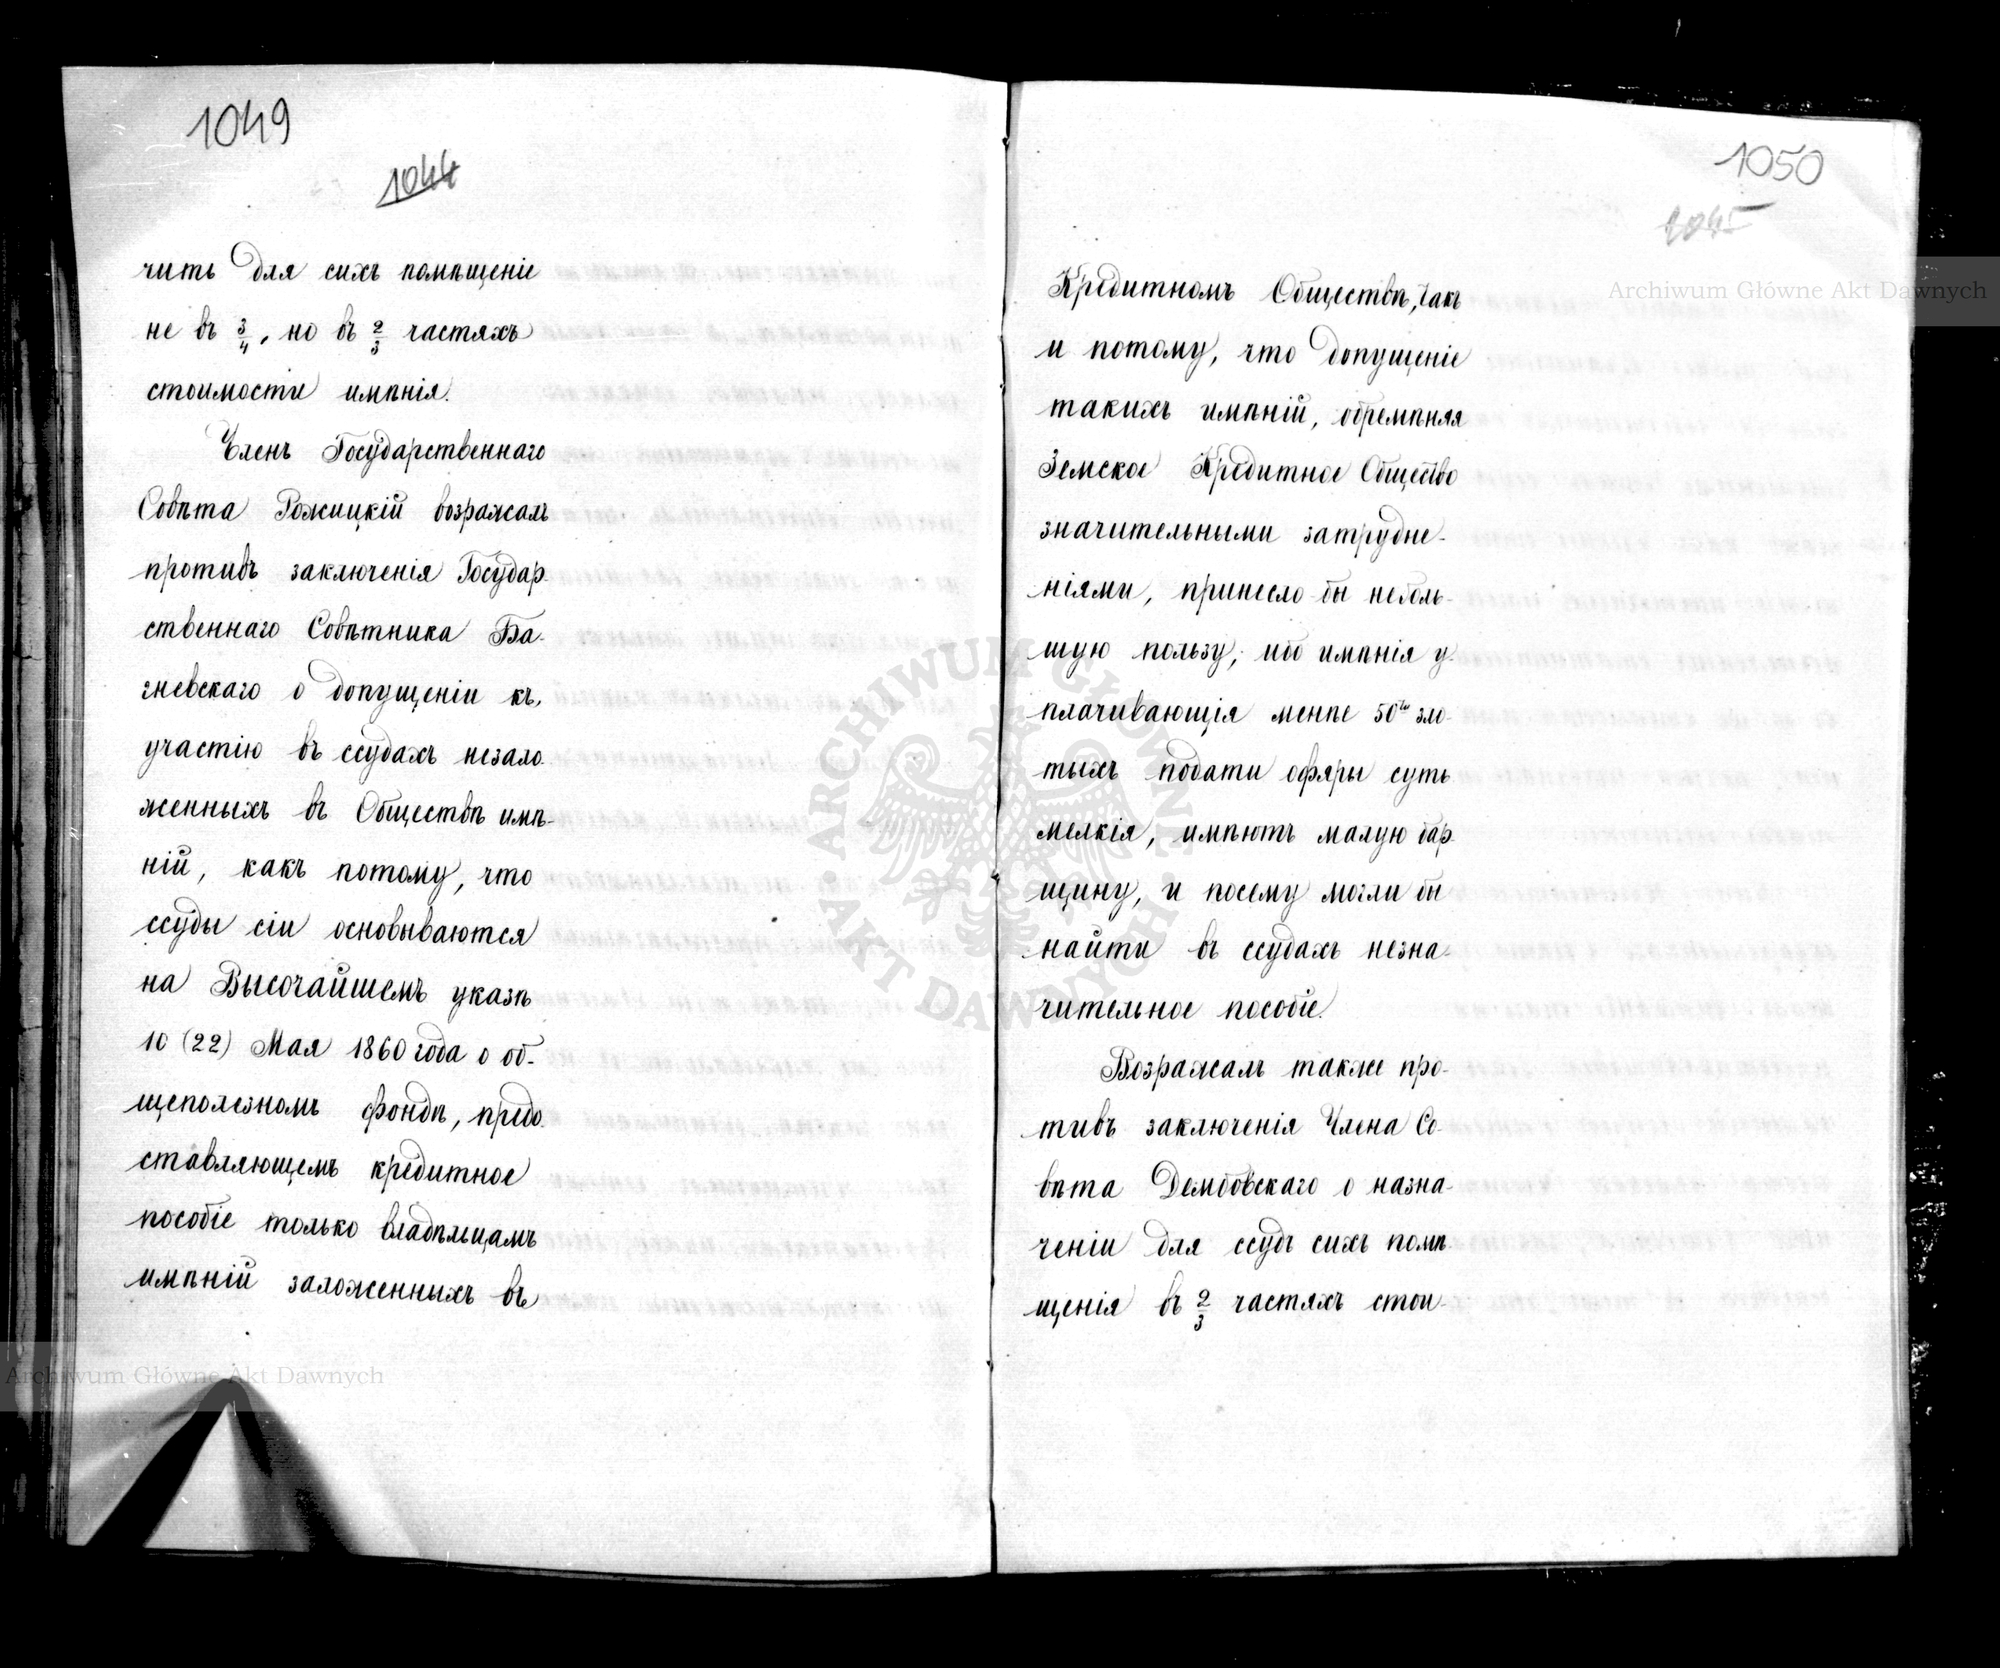 1049
1044
чить для сихъ помѣщеніе
не въ 3/4, но въ 2/3 частяхъ
стоимости имѣнія.
Членъ Государственнаго
Совѣта Рожицкій возражалъ
противъ заключенія Государ-
ственнаго Совѣтника Ба-
гневскаго о допущеніи къ
участію въ ссудахъ незало-
женныхъ въ Обществѣ имѣ-
ній, какъ потому, что
ссуды сіи основываются
на Высочайшемъ указѣ
10 (22) Мая 1860 года о об-
щеполезномъ фондѣ, предо-
ставляющемъ кредитное
пособіе только владѣльцамъ
имѣній заложенныхъ въ
1050
1045
Кредитномъ Обществѣ, такъ
и потому, что допущеніе
такихъ имѣній, обремѣняя
Земское Кредитное Общество
значительными затрудне-
ніями, принесло бы неболь-
шую пользу, ибо имѣнія у-
плачивающія менѣе 50ти зло-
тыхъ подати офяры суть
мелкія, имѣютъ малую бар-
щину, и посему могли бы
найти въ ссудахъ незна-
чительное пособіе.
Возражалъ также про-
тивъ заключенія Члена Со-
вѣта Дембовскаго о назна-
ченіи для ссудъ сихъ помѣ-
щенія въ 2/3 частяхъ стои-
Archiwum Główne Akt Dawnych
Archiwum Główne Akt Dawnych
ARCHIWUM GŁÓWNE
AKT DAWNYCH